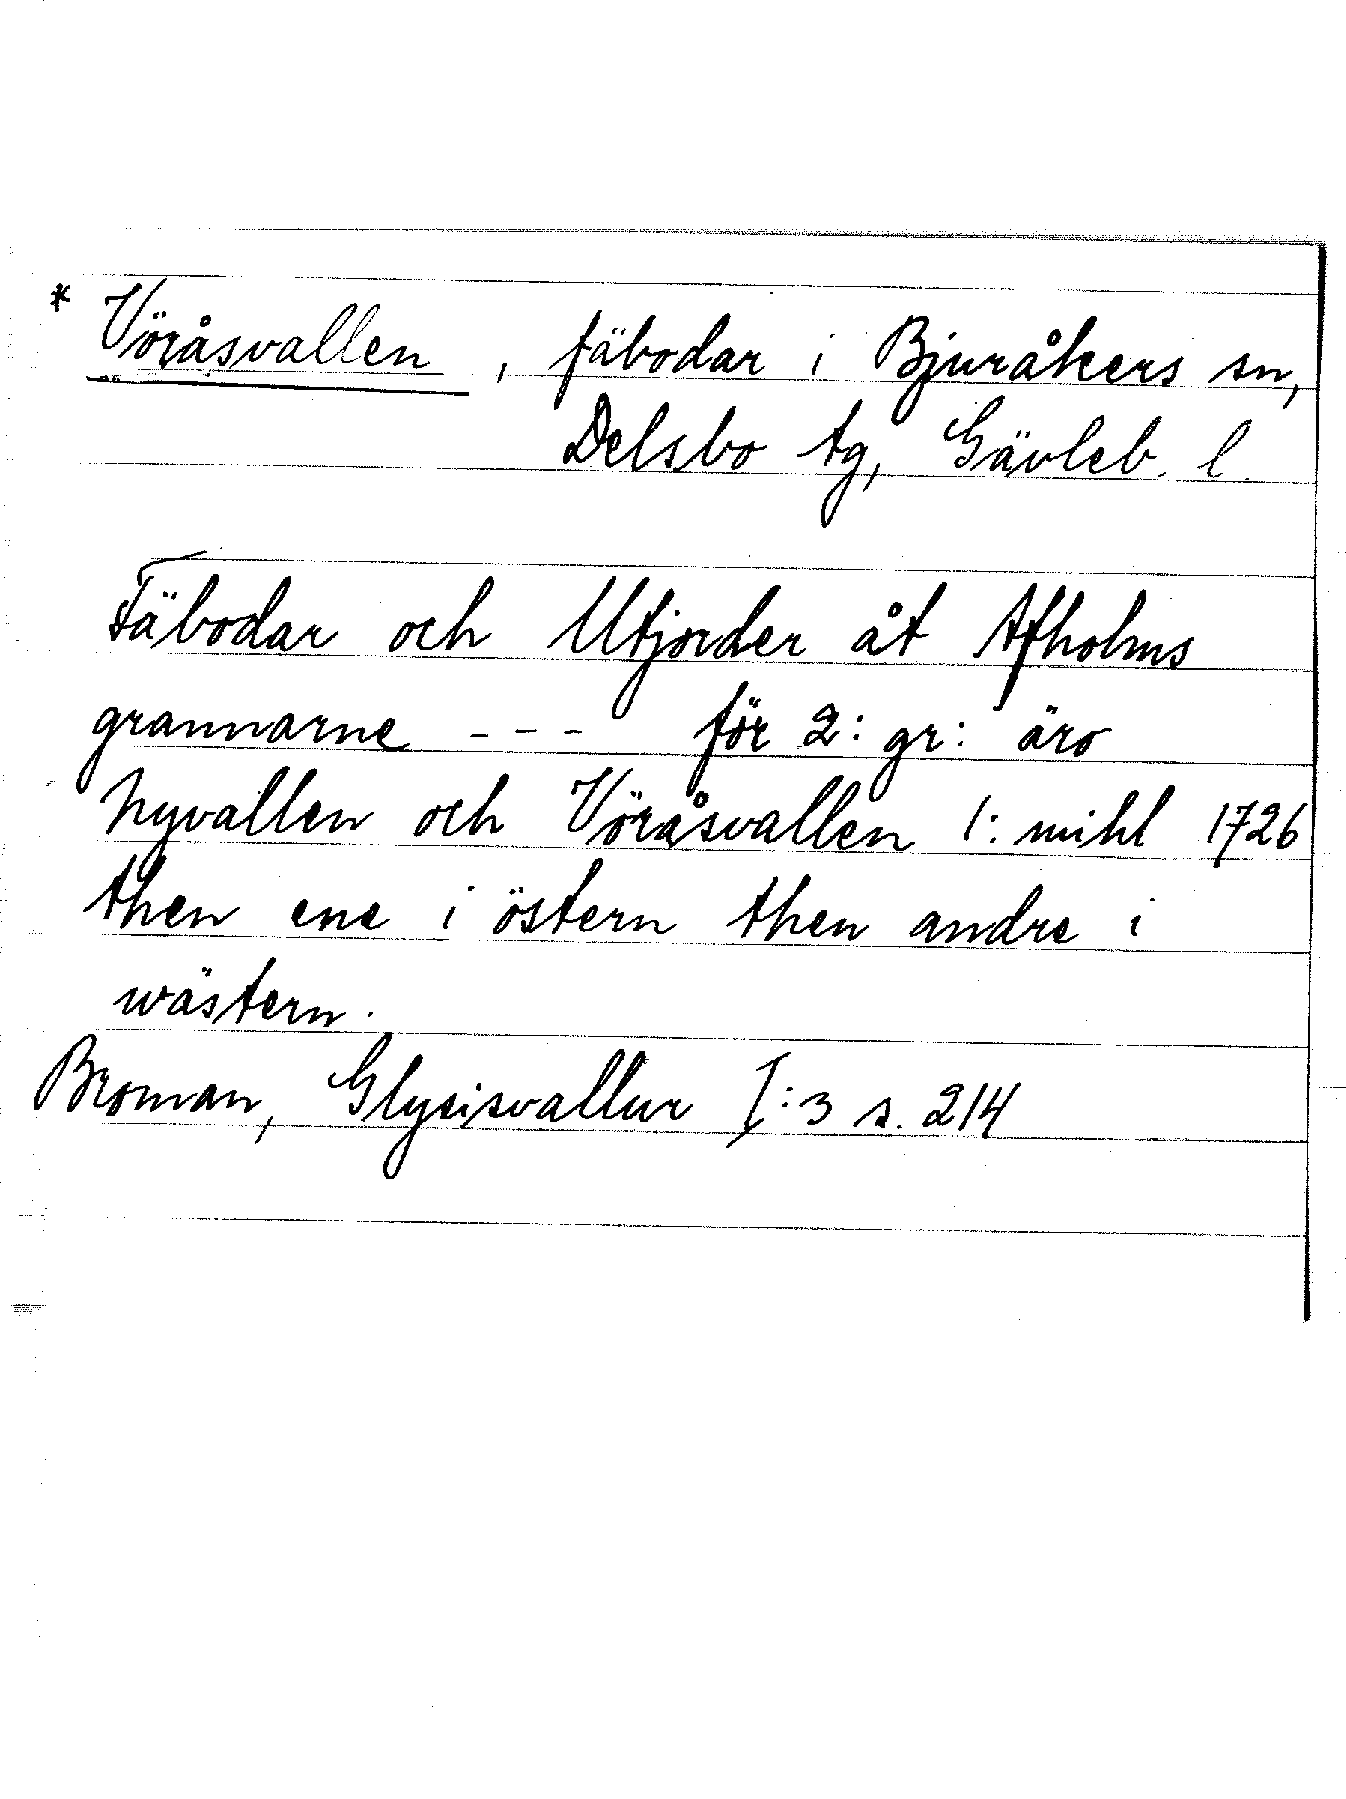 * Vöråsvallen, fäbodar i Bjuråkers sn,
Delsbo tg, Gävleb. l.
Fäbodar och Utjorder åt Afholms
grannarne --- för 2: gr: äro
Nyvallen och Vöråsvallen 1: mihl 1726
then ene i östern then andre i
wästern.
Broman, Glysisvallur I:3 s. 214